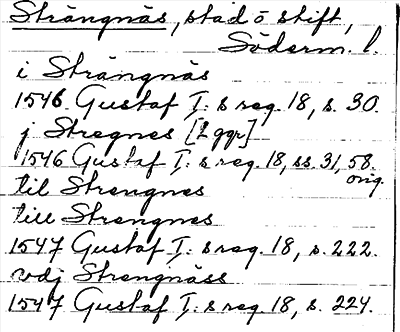 Strängnäs, stad o stift,
Söderm. l.
i Strängnäs
1546 Gustaf I: s reg. 18, s. 30.
j Stregnes [2 ggr]
1546 Gustaf I: s reg. 18, ss. 31, 58.
orig.
til Strengnes
till Strengnes
1547 Gustaf I: s reg. 18, s. 222.
vdj Strengnäss
1547 Gustaf I: s reg. 18, s. 224.